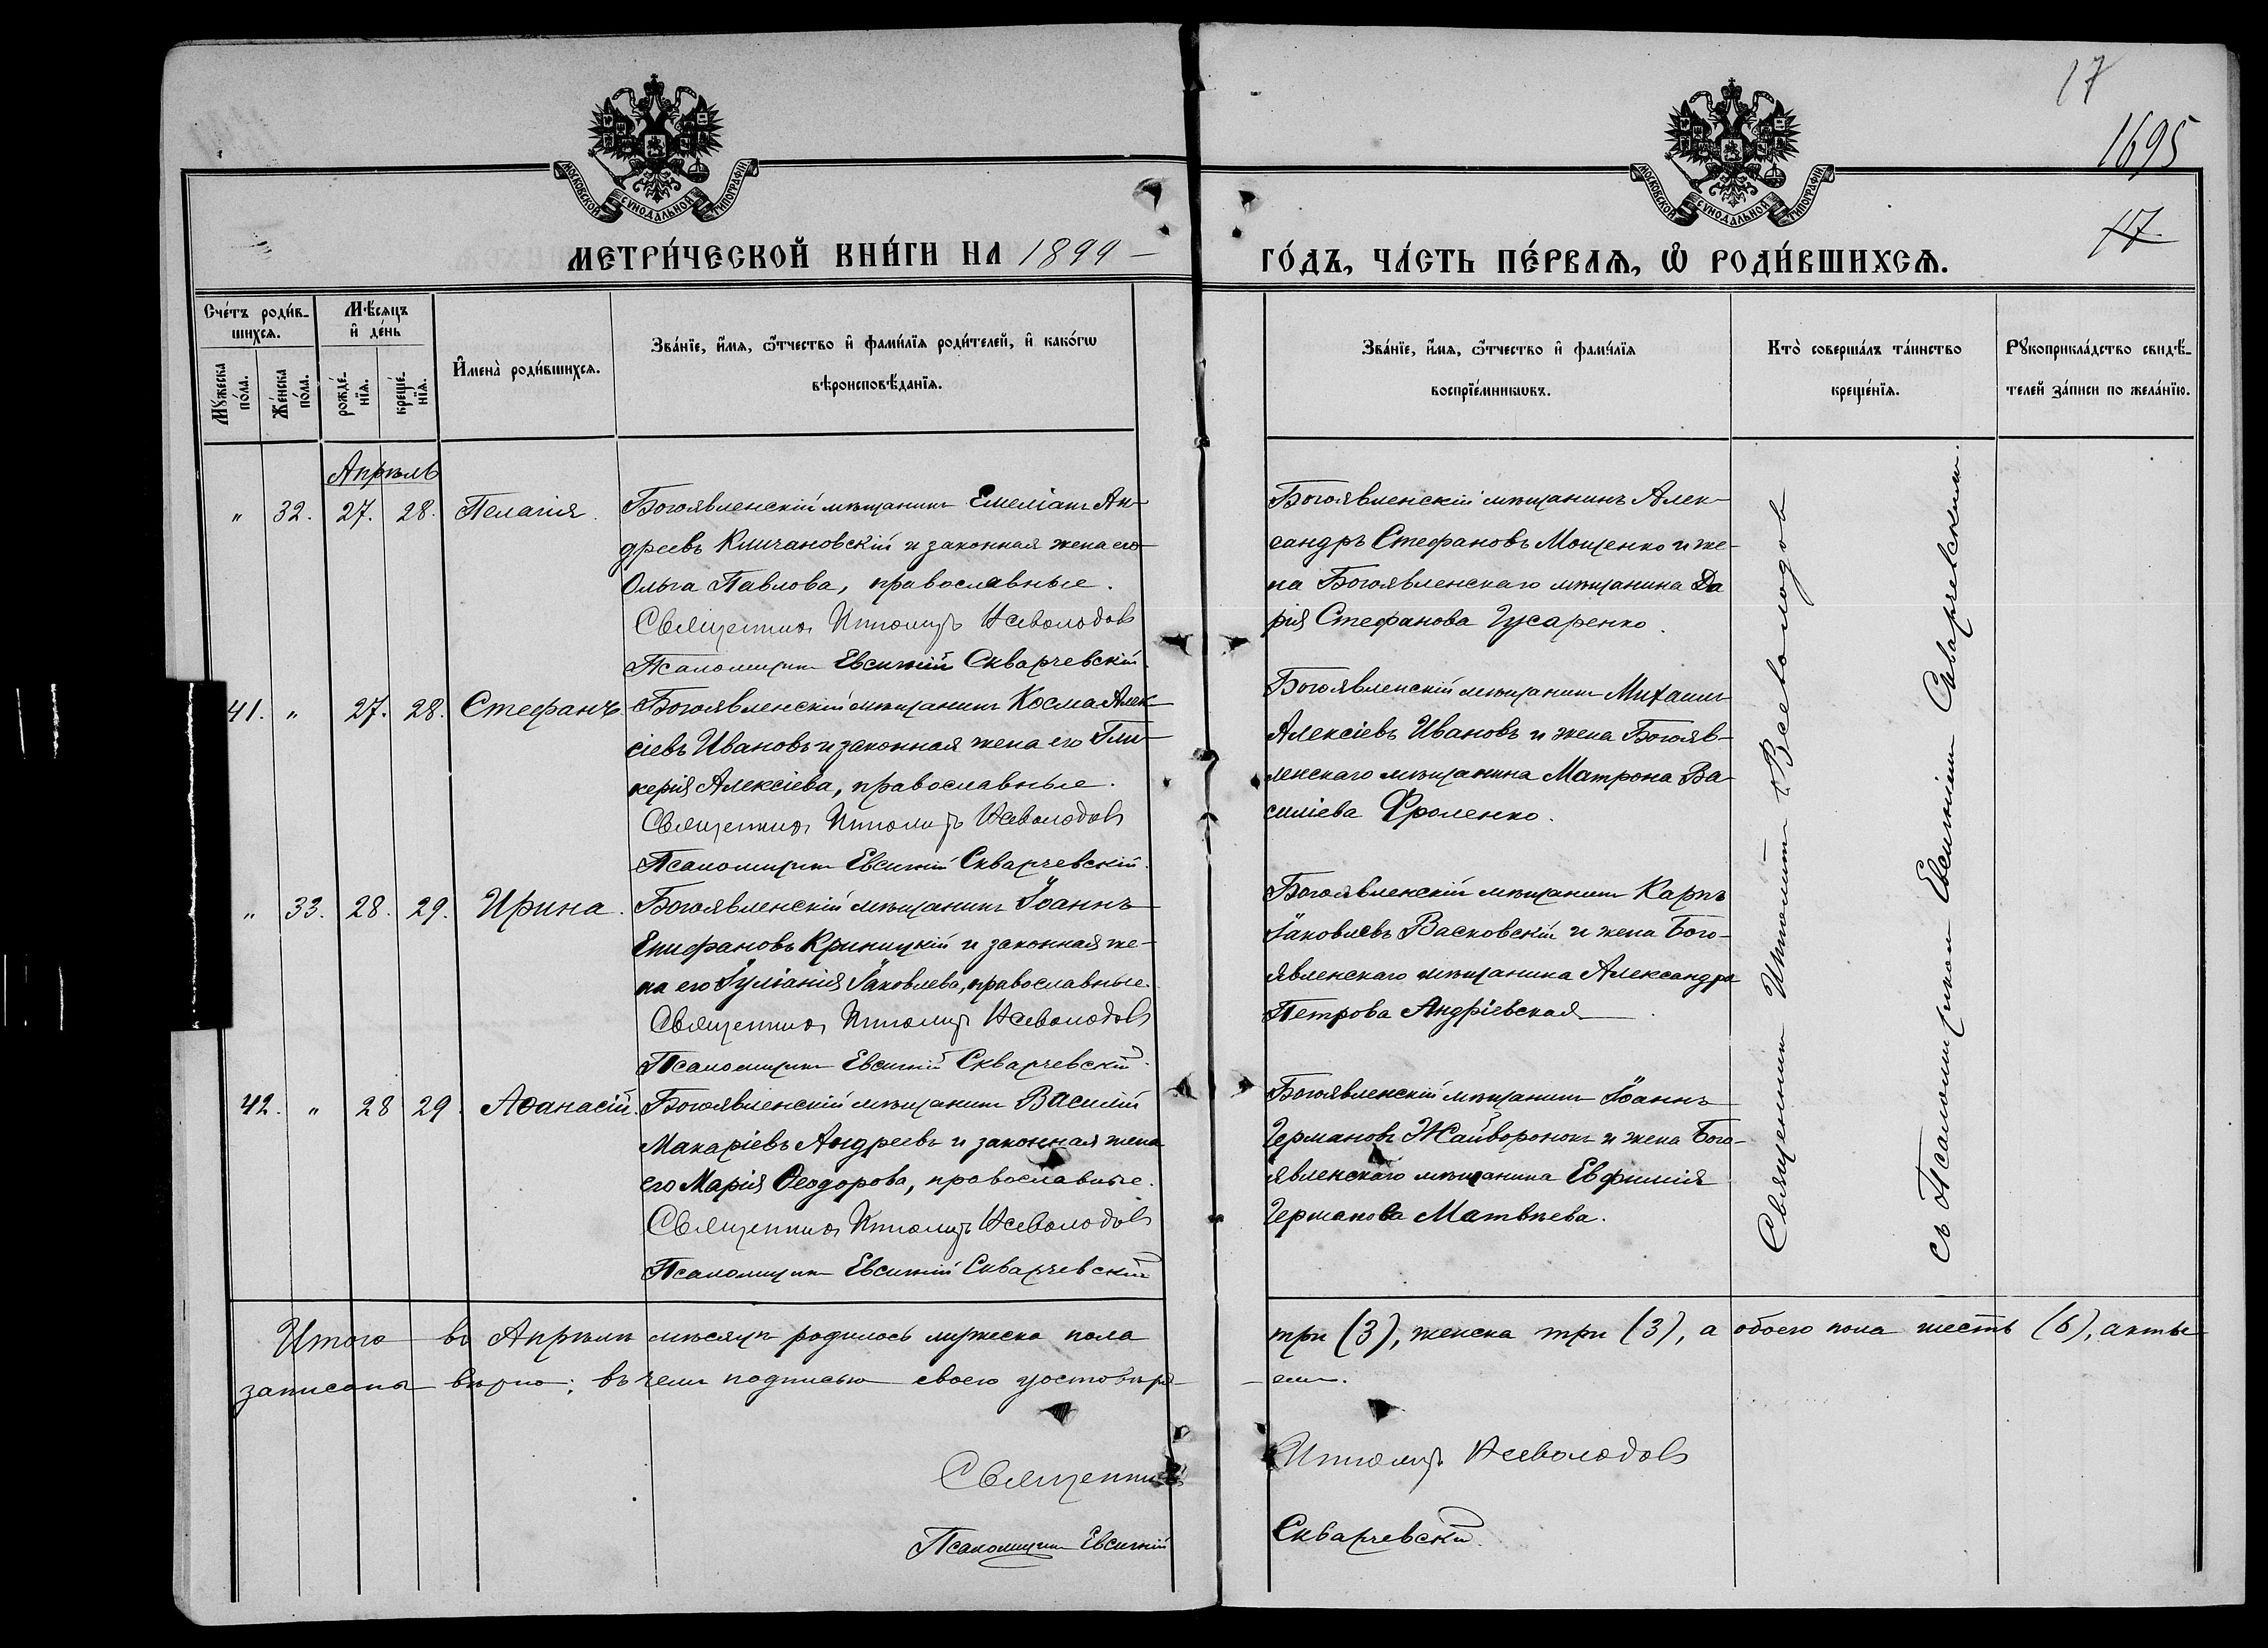 17
1695
17.
МОСКОВСКОЙ СѴНОДАЛЬНОЙ ТИПОГРАФІИ
МОСКОВСКОЙ СѴНОДАЛЬНОЙ ТИПОГРАФІИ
МЕТРИ́ЧЕСКОЙ КНИ́ГИ НА 1899
ГО́ДЪ, ЧА́СТЬ ПЕ́РВАѦ, Ѡ РОДИ́ВШИХСѦ.
Сче́тъ роди́в-
шихсѧ.
Мꙋ́жеска по́ла.
Же́нска по́ла.
Мѣ́сѧцъ
и҆ де́нь
рожде́-нїѧ.
креще́-нїѧ.
И҆мена̀ роди́вшихсѧ.
Зва́нїе, и҆́мѧ, ѻ҆́тчество и҆ фами́лїѧ роди́телей, и҆ како́гѡ
вѣроисповѣ́данїѧ.
Зва́нїе, и҆́мѧ, ѻ҆́тчество и҆ фами́лїѧ
воспрїе́мникѡвъ.
Кто̀ соверша́лъ та́инство
креще́нїѧ.
Рꙋкоприкла́дство свидѣ́-
телей за́писи по жела́нїю.
Апрѣль
" 32. 27. 28. Пелагія.
Богоявленскій мѣщанинъ Емеліанъ Ан-
дреевъ Кличановскій и законная жена его
Ольга Павлова, православные.
Священникъ Ипполитъ Всеволодовъ
Псаломщикъ Евсигній Скварчевскій.
Богоявленскій мѣщанинъ Алек-
сандръ Стефановъ Мощенко и же-
на Богоявленскаго мѣщанина Да
рія Стефанова Гусаренко.
41. " 27. 28. Стефанъ
Богоявленскій мѣщанинъ Косма Алек-
сіевъ Ивановъ и законная жена его Гли-
керія Алексіева, православные.
Священникъ Ипполитъ Всеволодовъ
Псаломщикъ Евсигній Скварчевскій.
Богоявленскій мѣщанинъ Михаилъ
Алексіевъ Ивановъ и жена Богояв-
ленскаго мѣщанина Матрона Ва-
силіева Фроленко.
" 33. 28. 29. Ирина.
Богоявленскій мѣщанинъ Іоаннъ
Епифановъ Криницкій и законная же-
на его Іуліанія Іаковлева, православные.
Священникъ Ипполитъ Всеволодовъ
Псаломщикъ Евсигній Скварчевскій.
Богоявленскій мѣщанинъ Карпъ
Іаковлевъ Васковскій и жена Бого-
явленскаго мѣщанина Александра
Петрова Андріевская.
42. " 28 29. Аѳанасій.
Богоявленскій мѣщанинъ Василій
Макаріевъ Андреевъ и законная жена
его Марія Ѳеодорова, православные.
Священникъ Ипполитъ Всеволодовъ
Псаломщикъ Евсигній Скварчевскій
Богоявленскій мѣщанинъ Іоаннъ
Германовъ Жайворонокъ и жена Бого-
явленскаго мѣщанина Евфимія
Германова Матвѣева.
Священникъ Ипполитъ Всеволодовъ
съ Псаломщикомъ Евсигніемъ Скварчевскимъ.
Итого въ Апрѣлѣ мѣсяцѣ родилось мужеска пола три (3), женска три (3), а обоего пола шесть (6), акты
записаны вѣрно; въ чемъ подписью своею удостовѣря-емъ.
Священникъ Ипполитъ Всеволодовъ
Псаломщикъ Евсигній Скварчевскій.